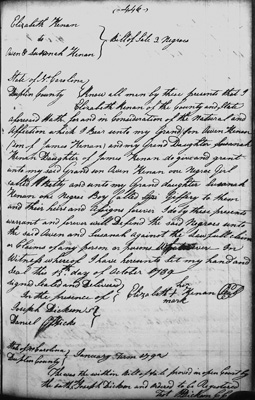 Elizabeth Kenan
to
Owen & Susanah Kenan
Bill of Sale 3 Negroes
State of No Carolina
Duplin County Know all men by these presents that I
Elizabeth Kenan of the County and State
aforesaid Hath for and in Consideration of the Natural and
Affection which I Bear unto my Grand son Owen Kenan
(son of James Kenan) and my Grand Daughter Susanah
Kenan Daughter of James Kenan do give and grant
unto my said Grand son Owen Kenan one Negroe Girl
Called Betty and unto my Grand daughter Susanah
Kenan one Negroe Boy Called to them
and their heirs and Assigns forever I do by these presents
warrant and forever will Defend the said Negroes unto
the said Owen and Susanah against the Lawfull claim
or Claims of any person or persons Whatsoever In
Witness whereof I have hereunto Set my hand and
Seal the 15th day of October 1789
Signed Sealed and Delivered
In the presence of Elizabeth Kenan
mark
Joseph Dickson
Daniel Hicks
State of No Carolina
Duplin County January Term 1792
There was the within Bill of Sale proved in open Court by
the oath Joseph Dickson and ordered to be Registered
Dickson